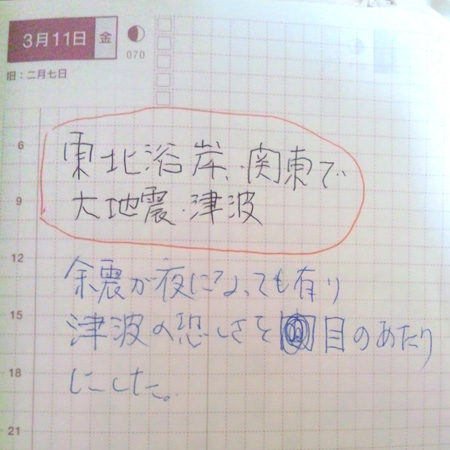 3月11日 金
070
旧：二月七日
6
東北沿岸、関東で
9
大地震・津波
12
余震が夜になっても有り
15
津波の恐しさを目のあたり
18
にした。
21